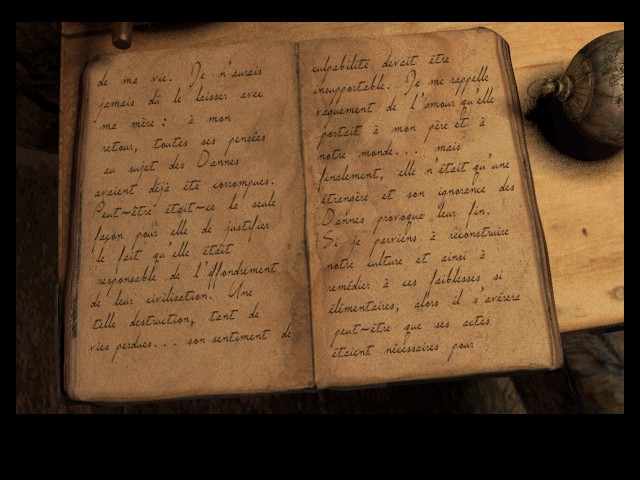 de ma vie. Je n'aurais
jamais dû le laisser avec
ma mère : à mon
retour, toutes ses pensées
au sujet des Dannes
avaient déjà été corrompues.
Peut-être était-ce le seule
façon pour elle de justifier
le fait qu'elle était
responsable de l'effondrement
de leur civilisation. Une
telle destruction, tant de
vies perdues... son sentiment de
culpabilité devait être
insupportable. Je me rappelle
vaguement de l'amour qu'elle
portait à mon père et à
notre monde... mais
finalement, elle n'était qu'une
étrangère et son ignorance des
Dannes provoqua leur fin.
Si je parviens à reconstruire
notre culture et ainsi à
remédier à ces faiblesses si
élémentaires, alors il s'avérera
peut-être que ses actes
étaient nécessaires pour